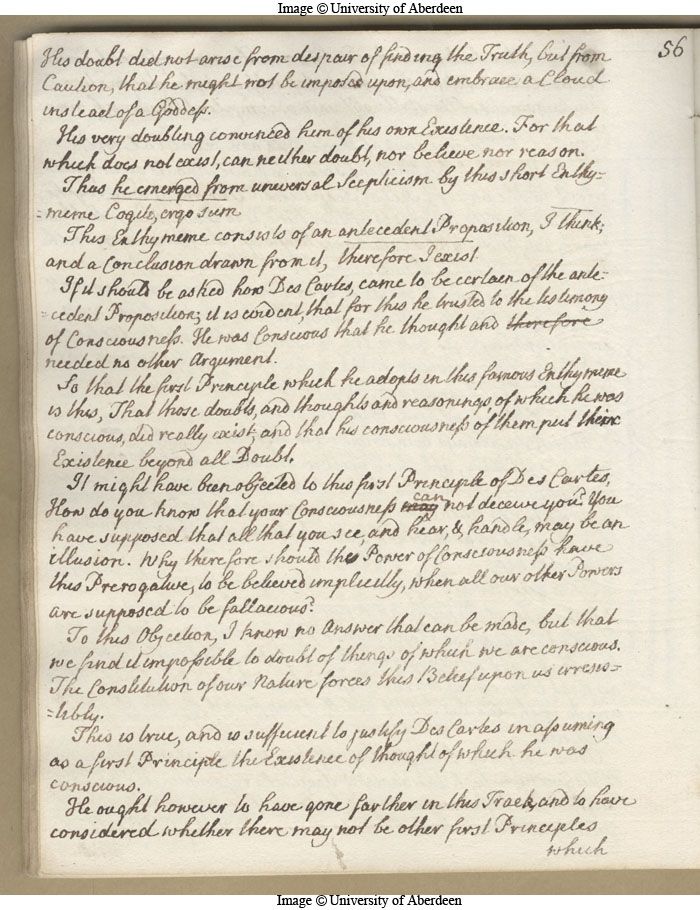 Image © University of Aberdeen
56
His doubt did not arise from despair of finding the Truth, but from
Caution, that he might not be imposed upon, and embrace a Cloud
instead of a Goddess.
His very doubting convinced him of his own Existence. For that
which does not exist, can neither doubt, nor believe nor reason.
Thus he emerged from universal Scepticism by this short Enthy=
=meme Cogito, ergo sum
This Enthymeme consists of an antecedent Proposition, I think;
and a Conclusion drawn from it, therefore I exist
If it should be asked how Des Cartes, came to be certain of the ante=
=cedent Proposition; it is evident, that for this he trusted to the testimony
of Consciousness. He was Conscious that he thought and therefore
needed no other Argument.
So that the first Principle which he adopts in this famous Enthymeme
is this, That those doubts, and thoughts and reasonings, of which he was
conscious, did really exist; and that his consciousness of them put their
Existence beyond all Doubt.
It might have been objected to this first Principle of Des Cartes,
How do you know that your Consciousness may can not deceive you? You
have supposed that all that you see, and hear, & handle, may be an
illusion. Why therefore should the Power of Consciousness have
this Prerogative, to be believed implicitly, when all our other Powers
are supposed to be fallacious?
To this Objection, I know no Answer that can be made, but that
we find it impossible to doubt of things of which we are conscious.
The Constitution of our Nature forces this Belief upon us irresis=
=tibly.
This is true, and is sufficient to justify Des Cartes in assuming
as a first Principle the Existence of thought of which he was
conscious.
He ought however to have gone farther in this Track, and to have
considered whether there may not be other first Principles
which
Image © University of Aberdeen